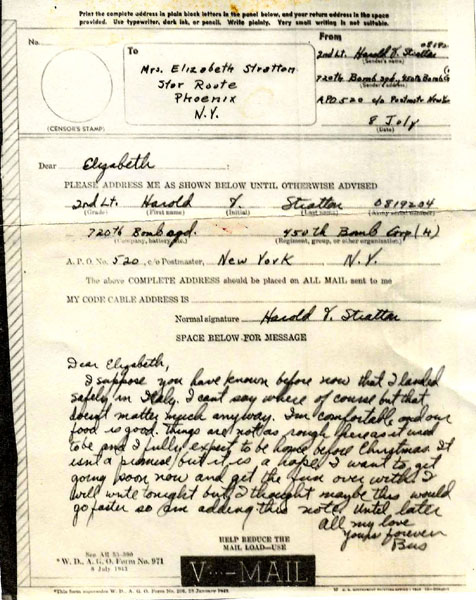 Print the complete address in plain block letters in the panel below, and your return address in the space
provided. Use typewriter, dark ink, or pencil. Write plainly. Very small writing is not suitable.
No.
(CENSOR'S STAMP)
To
Mrs. Elizabeth Stratton
Star Route
Phoenix
N.Y.
From
2nd Lt. Harold V. Stratton
(Sender's name)
720th Bomb sqd., 450th Bomb G
(Sender's address)
A.P.O. 520 c/o Postmstr New Yo
8 July
(Date)
Dear Elizabeth :
PLEASE ADDRESS ME AS SHOWN BELOW UNTIL OTHERWISE ADVISED
2nd Lt. Harold V. Stratton 0819204
(Grade) (First name) (Initial) (Last name) (Army serial number)
720th Bomb sqd. 450th Bomb Grp (H)
(Company, battery, etc.) (Regiment, group, or other organization)
A. P. O. No. 520, c/o Postmaster, New York N.Y.
The above COMPLETE ADDRESS should be placed on ALL MAIL sent to me
MY CODE CABLE ADDRESS IS
Normal signature Harold V. Stratton
SPACE BELOW FOR MESSAGE
Dear Elizabeth,
I suppose you have known before now that I landed
safely in Italy. I cant say where of course but that
doesn't matter much anyway. I'm comfortable and our
food is good. Things are not as rough here as it used
to be and I fully expect to be home before Christmas. It
isnt a promise but it is a hope. I want to get
going soon now and get the fun over with. I
will write tonight but I thought maybe this would
go faster so am adding this note. Until later
all my love
Yours forever
Bus
HELP REDUCE THE
MAIL LOAD—USE
V···—MAIL
See AR 55-390
*W. D., A. G. O. Form No. 971
8 July 1943
*This form supersedes W. D., A. G. O. Form No. 206, 28 January 1942.